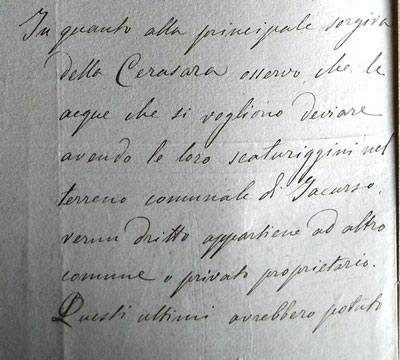 In quanto alla principale sorgiva
della Cerasara osservo che le
acque che si vogliono deviare
avendo le loro scaturiggini nel
terreno comunale di Jacurso,
verun dritto appartiene ad altro
comune o privato proprietario.
Questi ultimi avrebbero potuto